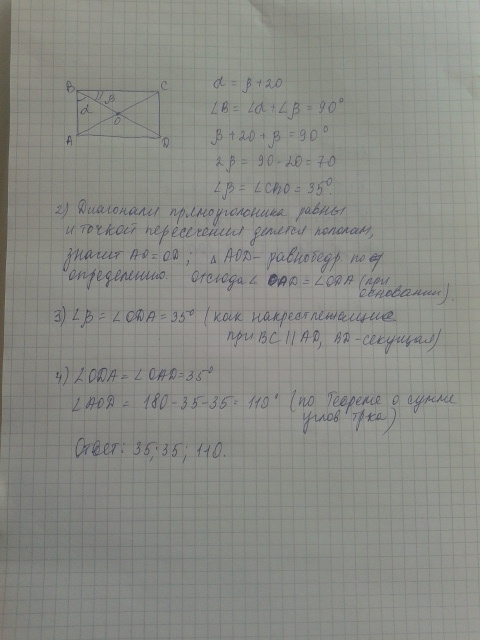 B C
α β
O
A D
α = β+20
∠B = ∠α + ∠β = 90°
β + 20 + β = 90°
2β = 90 - 20 = 70
∠β = ∠CBO = 35°
2) Диагонали прямоугольника равны
и точкой пересечения делятся пополам,
значит AO = OD ; △ AOD - равнобедр. по
определению. отсюда ∠ OAD = ∠ODA (при
основании)
3) ∠β = ∠ODA = 35° (как накрестлежащие
при BC || AD, BD - секущая)
4) ∠ODA = ∠OAD = 35°
∠AOD = 180 - 35 - 35 = 110° (по Теореме о сумме
углов тр-ка)
Ответ: 35; 35; 110.